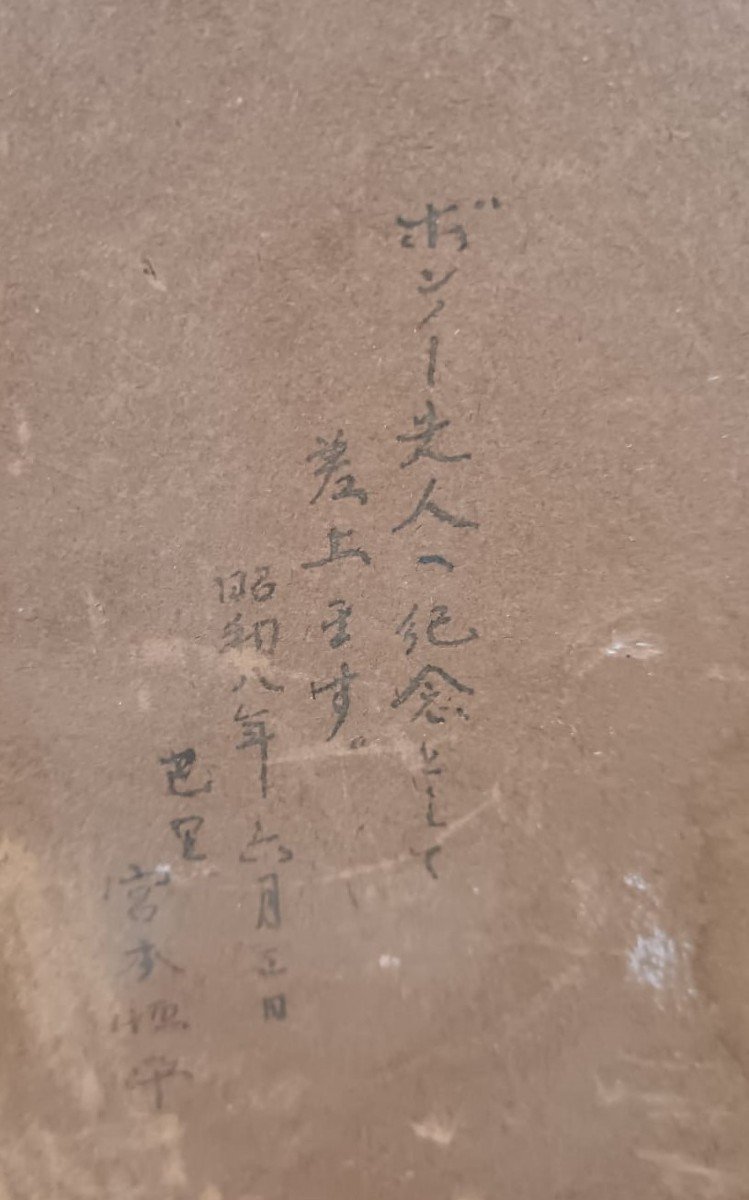 ボンノー夫人へ紀念として
差上ます。
昭和八年六月五日
巴里
宮本恒平